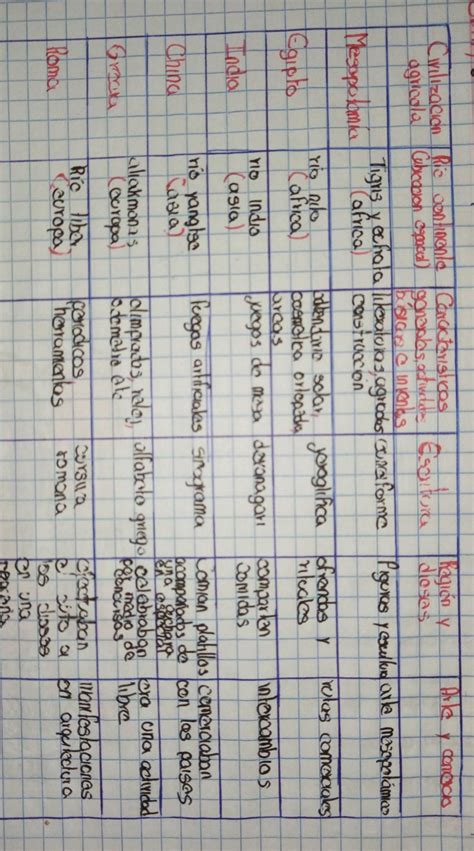 Civilización agrícola
Río continente
(ubicacion espacial)
Caracteristicas
generales, actividades
básicas e inventos
Escritura
Religión y
diosas
Arte y comercio
Mesopotamia
Tigris y eufrata
(africa)
literaturas, agrados
construccion
cuneiforme
Figuras y escultura
arte mesopotámico
Egipto
rio nilo
(africa)
calendario solar,
cosmetica ortopedia
arcoas
yeroglifica
ofrendas y
rituales
rutas comerciales
India
rio indio
(asia)
juegos de mesa
devanagari
comparten
comidas
intercambios
China
rio yangtse
(asia)
fuegos artificiales
sinograma
Comian platillos
acompañados de
comerciaban
con los paises
Grecia
(europa)
alfabeto griego
celebraban
por medio de
era una actividad
libre
Roma
Río tiber
(europa)
periodicos
herramentas
cursiva
romana
efectuaban
el culto a
los dioses
en una
manifestaciones
en arquitectura